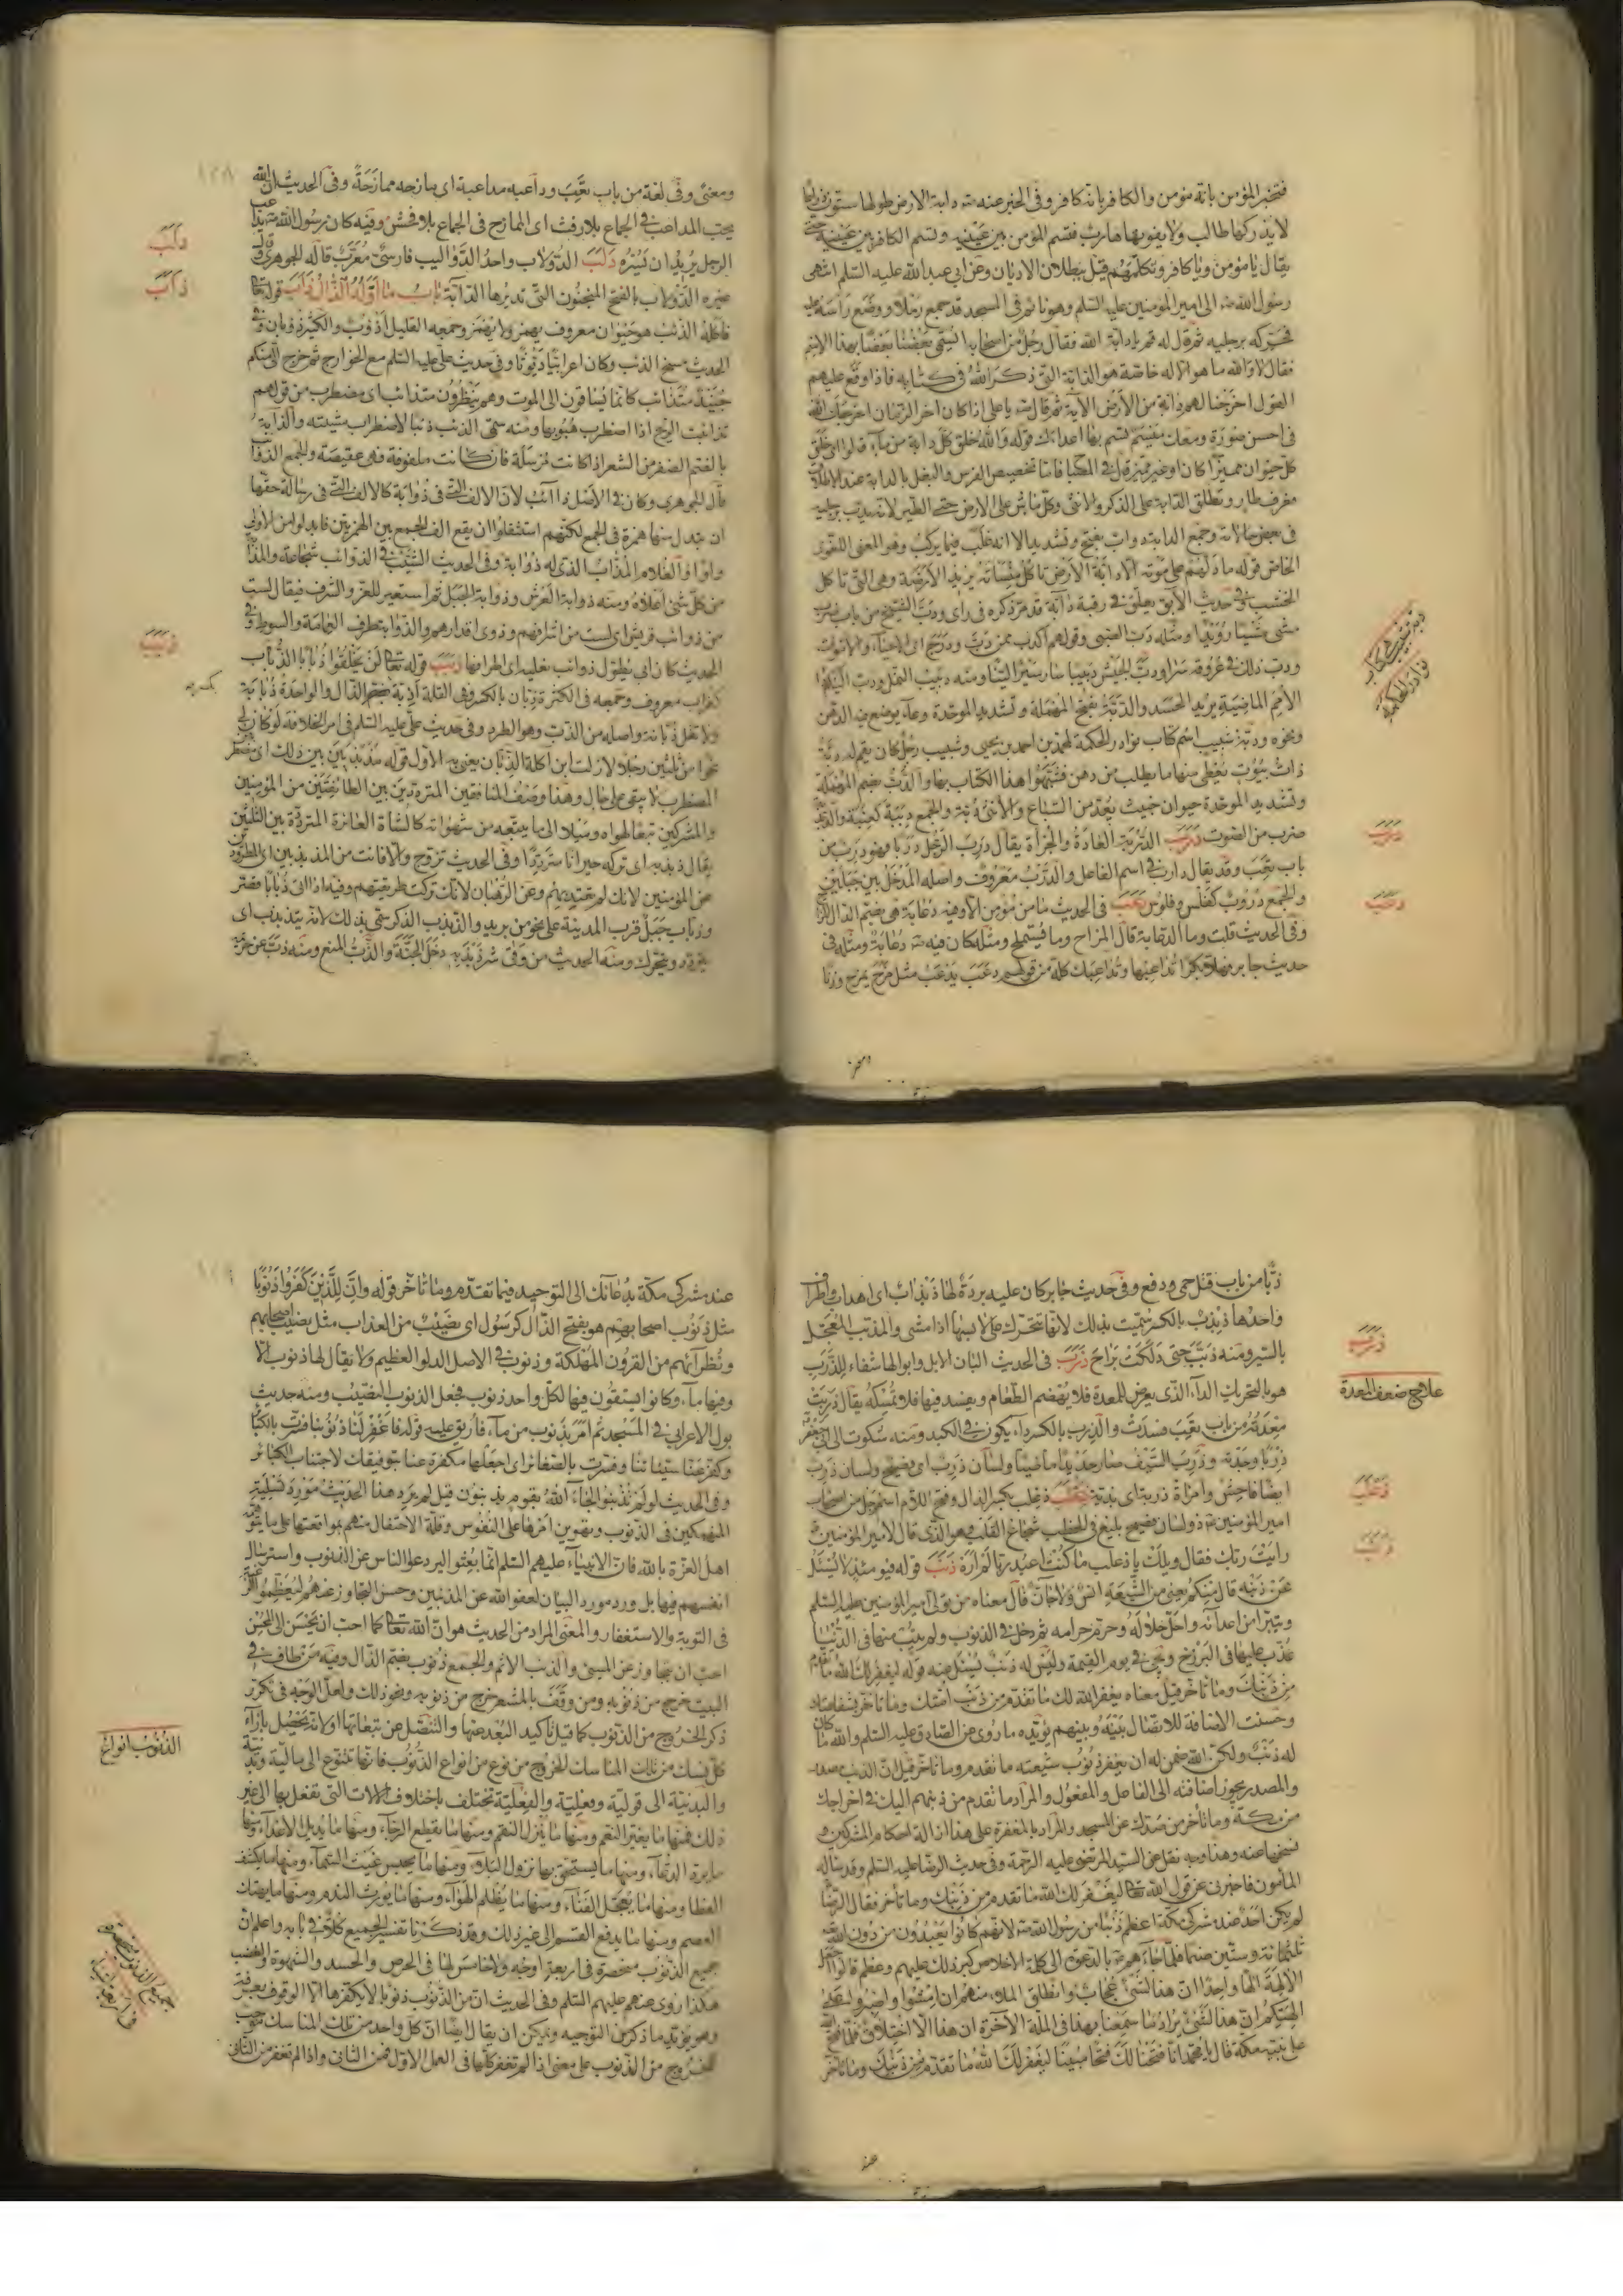 فتخبر المؤمن بانه مؤمن والكافر بانه كافر وفى الخبر عنه ص دابة الارض طولها ستون ذراعا
لا يدركها طالب ولا يفوتها هارب فتسم المؤمن بين عينيه وتسم الكافر بين عينيه حتى
يقال يا مؤمن ويا كافر وتكلمهم قيل ببطلان الاديان وعن ابى عبد الله عليه السلم انتهى
رسول الله ص الى امير المؤمنين عليه السلم وهو نائم فى المسجد قد جمع رملا ووضع راسه عليه
فحركه برجليه ثم قال له قم يا دابة الله فقال رجل من اصحابه ايسمى بعضنا بعضا بهذا الاسم
فقال لا والله ما هو الا له خاصة هو الدابة التى ذكر الله فى كتابه فاذا وقع عليهم
القول اخرجنا لهم دابة من الارض الآية ثم قال ص يا على اذا كان اخر الزمان اخرجك الله
فى احسن صورة ومعك ميسم تسم بها اعدائك قوله والله خلق كل دابة من ماء قالوا اى خلق
كل حيوان مميزا كان او غير مميز
معرف طار وتطلق الدابة على الذكر والانثى وكل ماش على الارض حتى الطير لانه يدب برجليه
فى بعض حالاته وجمع الدابة دواب بفتح وتشديد الا انه غلب فيما يركب وهو المعنى اللغوى
الخاص قوله ما دلهم على موته الا دابة الارض تاكل منساته يريد الارضة وهى التى تاكل
الخشب وفى حديث الآبق يعلق فى رقبة دابة قد مر ذكره فى راى ودب الشيخ من باب ضرب
مشى مشيا رويدا ومثله دب الصبى وقولهم اكذب ممن دب ودرج اى الاحياء والاموات
ودب ذلك فى عروقه سرا ودب الجيش دبيبا سار سيرا لينا ومنه دبيب النمل ودب اليكم داء
الامم الماضية يريد الحسد والدبة بفتح المهملة وتشديد الموحدة وعاء يوضع فيه الدهن
ونحوه ودبة شبيب اسم كتاب نوادر الحكمة لمحمد بن احمد بن يحيى وشبيب رجل كان بقم له دبة
ذات بيوت يعطى منها ما يطلب من دهن فشبهوا هذا الكتاب بها والدب بضم المهملة
وتشديد الموحدة حيوان خبيث يعد من السباع والانثى دبة والجمع دببة كعنبة
ضرب من الصوت درب الدربة العادة والجرأة يقال درب الرجل دربا فهو درب من
باب تعب وقد يقال دارب فى اسم الفاعل والدرب معروف واصله المدخل بين جبلين
والجمع دروب كفلس وفلوس دعب فى الحديث ما من مؤمن الا وفيه دعابة هى بضم الدال
وفى الحديث قلت وما الدعابة قال المزاح وما يستملح ومثله كان فيه ص دعابة ومثله فى
حديث جابر فهلا بكرا تداعبها وتداعبك كلة من قولهم دعب يدعب مثل مزح يمزح وزنا
دبة شبيب كتاب
نوادر الحكمة
درب
دعب
ومعنى وفى لغة من باب تعب وداعبه مداعبة اى مازحه ممازحة وفى الحديث ان الله
يحب المداعب فى الجماع بلا رفث اى الممازح فى الجماع بلا فحش وفيه كان رسول الله ص يداعب
الرجل يريد ان يسره دلب الدولاب واحد الدواليب فارسى معرب قاله الجوهرى وقال
غيره الدولاب بالفتح المنجنون التى تديرها الدابة باب ما اوله الذال ذاب قوله تعالى
فاكله الذئب هو حيوان معروف يهمز ولا يهمز وجمعه القليل اذؤب والكثير ذؤبان وفى
الحديث مسخ الذئب وكان اعرابيا ديوثا وفى حديث على عليه السلم مع الخوارج ثم خرج الى منكم
جنيد متذائب كانما يساقون الى الموت وهم ينظرون متذائب اى مضطرب من قولهم
تذائبت الريح اذا اضطرب هبوبها ومنه سمى الذئب ذئبا لاضطراب مشيته والذؤابة
بالضم الضفر من الشعر اذا كانت مرسلة فان كانت ملفوفة فهى عقيصة والجمع الذوائب
قال الجوهرى وكان فى الاصل ذاآئب لان الالف التى فى ذؤابة كالالف التى فى رسالة حقها
ان تبدل منها همزة فى الجمع لكنهم استثقلوا ان يقع الف الجمع بين الهمزتين فابدلوا من الاولى
واوا والغلام المذاب الذى له ذؤابة وفى الحديث الشيب فى الذوائب شجاعة
من كل شئ اعلاه ومنه ذوابة العرش وذوابة الجبل ثم استعير للعز والشرف فيقال لست
من ذوائب قريش اى لست من اشرافهم وذوى اقدارهم والذؤابة طرف العمامة والسوط وفى
الحديث كان ابى يطول ذوائب نعليه اى اطرافها ذبب قوله تعالى لن يخلقوا ذبابا الذباب
كغراب معروف وجمعه فى الكثرة ذبان بالكسر وفى القلة اذبة بضم الذال والواحدة ذبابة
ولا تقل ذبانة واصله من الذب وهو الطرد وفى حديث على عليه السلم فى امر الخلافة لو كان لى
نحوا من ثلثين رجلا لازلت ابن آكلة الذبان يعنى به الاول قوله مذبذبين بين ذلك اى
المضطرب لا يبقى على حال وهذا وصف المنافقين المترددين بين الطائفتين من المؤمنين
والمشركين تبعا لهواه وميلا الى ما يتبعه من شهواته كالشاة العائرة المترددة بين الثلتين
يقال ذبذبه اى تركه حيرانا مترددا وفى الحديث تزوج والا فانت من المذبذبين اى المطرودين
عن المؤمنين لانك لم تقتد بهم وعن الرهبان لانك تركت طريقتهم
وذباب جبل قرب المدينة على نحو من بريد والذبذب الذكر سمى بذلك لانه يتذبذب اى
يتردد ويتحرك ومنه الحديث من وقى شر ذبذبه دخل الجنة والذب المنع ومنه ذب عن حرمه
دلب
ذاب
ذبب
ذبا من باب قتل حمى ودفع وفى حديث جابر كان عليه بردة لها ذباذب اى اهداب واطراف
واحدها ذبذب بالكسر سميت بذلك لانها تتحرك على لابسها اذا مشى والمذبب المعجل
بالسير ومنه ذبب حتى دلكت براح ذرب فى الحديث البان الابل وابوالها شفاء للذرب
هو بالتحريك الداء الذى يعرض للمعدة فلا يهضم الطعام ويفسد فيها فلا تمسكه يقال ذربت
معدته من باب تعب فسدت والذرب بالكسر داء يكون فى الكبد ومنه شكوت الى ابى جعفر
ذربا وجدته وذرب السيف صار حديدا ماضيا ولسان ذرب اى فصيح ولسان ذرب
ايضا فاحش وامراة ذربة اى بذية ذعلب ذعلب بكسر الذال وفتح اللام اسم رجل من اصحاب
امير المؤمنين ع ذو لسان فصيح بليغ فى الخطب شجاع القلب هو الذى قال لامير المؤمنين ع
رايت ربك فقال ويلك يا ذعلب ما كنت اعبد ربا لم اره ذنب قوله فيومئذ لا يسئل
عن ذنبه قال منكم يعنى من الشيعة انس ولا جان قال معناه من تولى امير المؤمنين عليه السلم
وتبرا من اعدائه واحل حلاله وحرم حرامه ثم دخل فى الذنوب ولم يتب منها فى الدنيا
عذب عليها فى البرزخ ويخرج يوم القيمة وليس له ذنب يسئل عنه قوله ليغفر لك الله ما تقدم
من ذنبك وما تاخر قيل معناه يغفر الله لك ما تقدم من ذنب امتك وما تاخر بشفاعتك
وحسنت الاضافة للاتصال بينه وبينهم يؤيده ما روى عن الصادق عليه السلم والله ما كان
له ذنب ولكن الله ضمن له ان يغفر ذنوب شيعته ما تقدم وما تاخر قيل ان الذنب مصدر
والمصدر يجوز اضافته الى الفاعل والمفعول والمراد ما تقدم من ذنبهم اليك فى اخراجك
من مكة وما تاخر من صدك عن المسجد والمراد بالمغفرة على هذا ازالة احكام المشركين و
نسخها عنه وهذا وجه نقل عن السيد المرتضى عليه الرحمة وفى حديث الرضا عليه السلم وقد ساله
المأمون فاخبرنى عن قول الله تعالى ليغفر لك الله ما تقدم من ذنبك وما تأخر فقال الرضا
لم يكن احد عند مشركى مكة اعظم ذنبا من رسول الله ص لانهم كانوا يعبدون من دون الله
ثلثمائة وستين صنما فلما جاءهم ص بالدعوة الى كلمة الاخلاص كبر ذلك عليهم وعظم قالوا اجعل
الآلهة الها واحدا ان هذا لشئ عجاب وانطلق الملأ منهم ان امشوا واصبروا على
آلهتكم ان هذا لشئ يراد ما سمعنا بهذا فى الملة الآخرة ان هذا الا اختلاق فلما فتح الله
على نبيه مكة قال يا محمد انا فتحنا لك فتحا مبينا ليغفر لك الله ما تقدم من ذنبك وما تاخر
ذرب
علاج ضعف المعدة
ذعلب
ذنب
عند مشركى مكة بدعائك الى التوحيد فيما تقدم وما تاخر قوله وان للذين كفروا ذنوبا
مثل ذنوب اصحابهم هو بفتح الذال كرسول اى نصيب من العذاب مثل نصيب اصحابهم
ونظرآئهم من القرون المهلكة وذنوب فى الاصل الدلو العظيم ولا يقال لها ذنوب الا
وفيها ماء وكانوا يستقون فيها لكل واحد ذنوب فجعل الذنوب النصيب ومنه حديث
بول الاعرابى فى المسجد ثم امر بذنوب من ماء فاريق عليه قوله فاغفر لنا ذنوبنا فسرت بالكبائر
وكفر عنا سيئاتنا وفسرت بالصغائر اى اجعلها مكفرة عنا بتوفيقك لاجتناب الكبائر
وفى الحديث لو لم تذنبوا لجاء الله بقوم يذنبون قيل لم يرد هذا الحديث مورد تسلية
المنهمكين فى الذنوب وتهوين امرها على النفوس وقلة الاحتفال منهم بمواقعتها على ما يتوهم
اهل الغرة بالله فان الانبياء عليهم السلم انما بعثوا ليردعوا الناس عن الذنوب واسترسال
انفسهم فيها بل ورد مورد البيان لعفو الله عن المذنبين وحسن التجاوز عنهم ليعظموا الرغبة
فى التوبة والاستغفار والمعنى المراد من الحديث هو ان الله تعالى كما احب ان يحسن الى المحسن
احب ان يتجاوز عن المسئ والذنب الاثم والجمع ذنوب بضم الذال وفيه من طاف فى
البيت خرج من ذنوبه ومن وقف بالمشعر خرج من ذنوبه ونحو ذلك ولعل الوجه فى تكرر
ذكر الخروج من الذنوب كما قيل تاكيد البعد عنها والتنصل عن تبعاتها او لانه يحصل بازاء
كل نسك من تلك المناسك الخروج من نوع من انواع الذنوب فانها تتنوع الى مالية وبدنية
والبدنية الى قولية وفعلية والفعلية تختلف باختلاف الآلات التى تفعل بها الى غير
ذلك فمنها ما يغير النعم ومنها ما ينزل النقم ومنها ما يقطع الرجاء ومنها ما يديل الاعداء ومنها
ما يرد الدعاء ومنها ما يستحق بها نزول البلاء ومنها ما يحبس غيث السماء ومنها ما يكشف
الغطا ومنها ما يعجل الفناء ومنها ما يظلم الهواء ومنها ما يورث الندم ومنها ما يهتك
العصم ومنها ما يدفع القسم الى غير ذلك وقد ذكرنا تفسير الجميع كلا فى بابه واعلم ان
جميع الذنوب منحصرة فى اربعة اوجه ولا خامس لها فى الحرص والحسد والشهوة والغضب
هكذا روى عنهم عليهم السلم وفى الحديث ان من الذنوب ذنوبا لا يكفرها الا الوقوف بعرفة
وهو يؤيد ما ذكر من التوجيه ويمكن ان يقال ايضا ان كل واحد من تلك المناسك موجب
للخروج من الذنوب على معنى اذا لم تغفر كلها فى العمل الاول فمن الثانى واذا لم تغفر من الثانى
الذنوب انواع